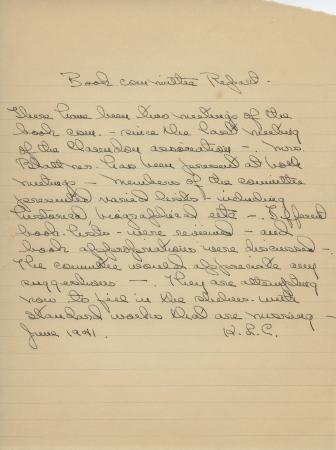 Book committee Report.
There have been two meetings of the
book com. - since the last meeting
of the Clarendon association -. Mrs.
has been present at both
meetings - Members of the committee
presented varied lists - including
historical, biographical etc -.
book lists - were reviewed - and
book were discussed -.
The committee would appreciate any
suggestions -. They are attempting
now to fill in the shelves with
standard works that are missing -
June 1941. H. L. C.